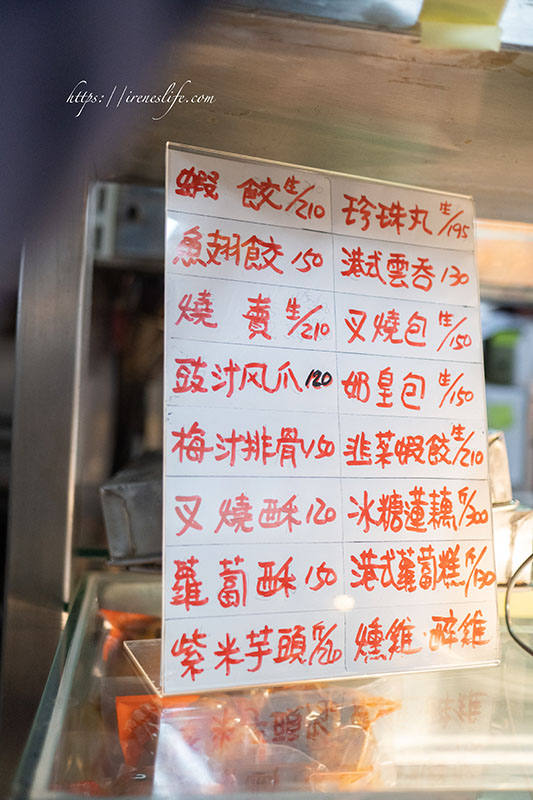 https://ireneslife.com
蝦 餃 生/210
珍珠丸 生/195
魚翅餃 150
港式雲吞 130
燒 賣 生/210
叉燒包 生/150
豉汁风爪 120
奶皇包 生/150
梅汁排骨 150
韭菜蝦餃 生/210
叉燒酥 120
冰糖蓮藕 斤/300
蘿蔔酥 150
港式蘿蔔糕 斤/130
紫米芋頭
燻雞.醉雞